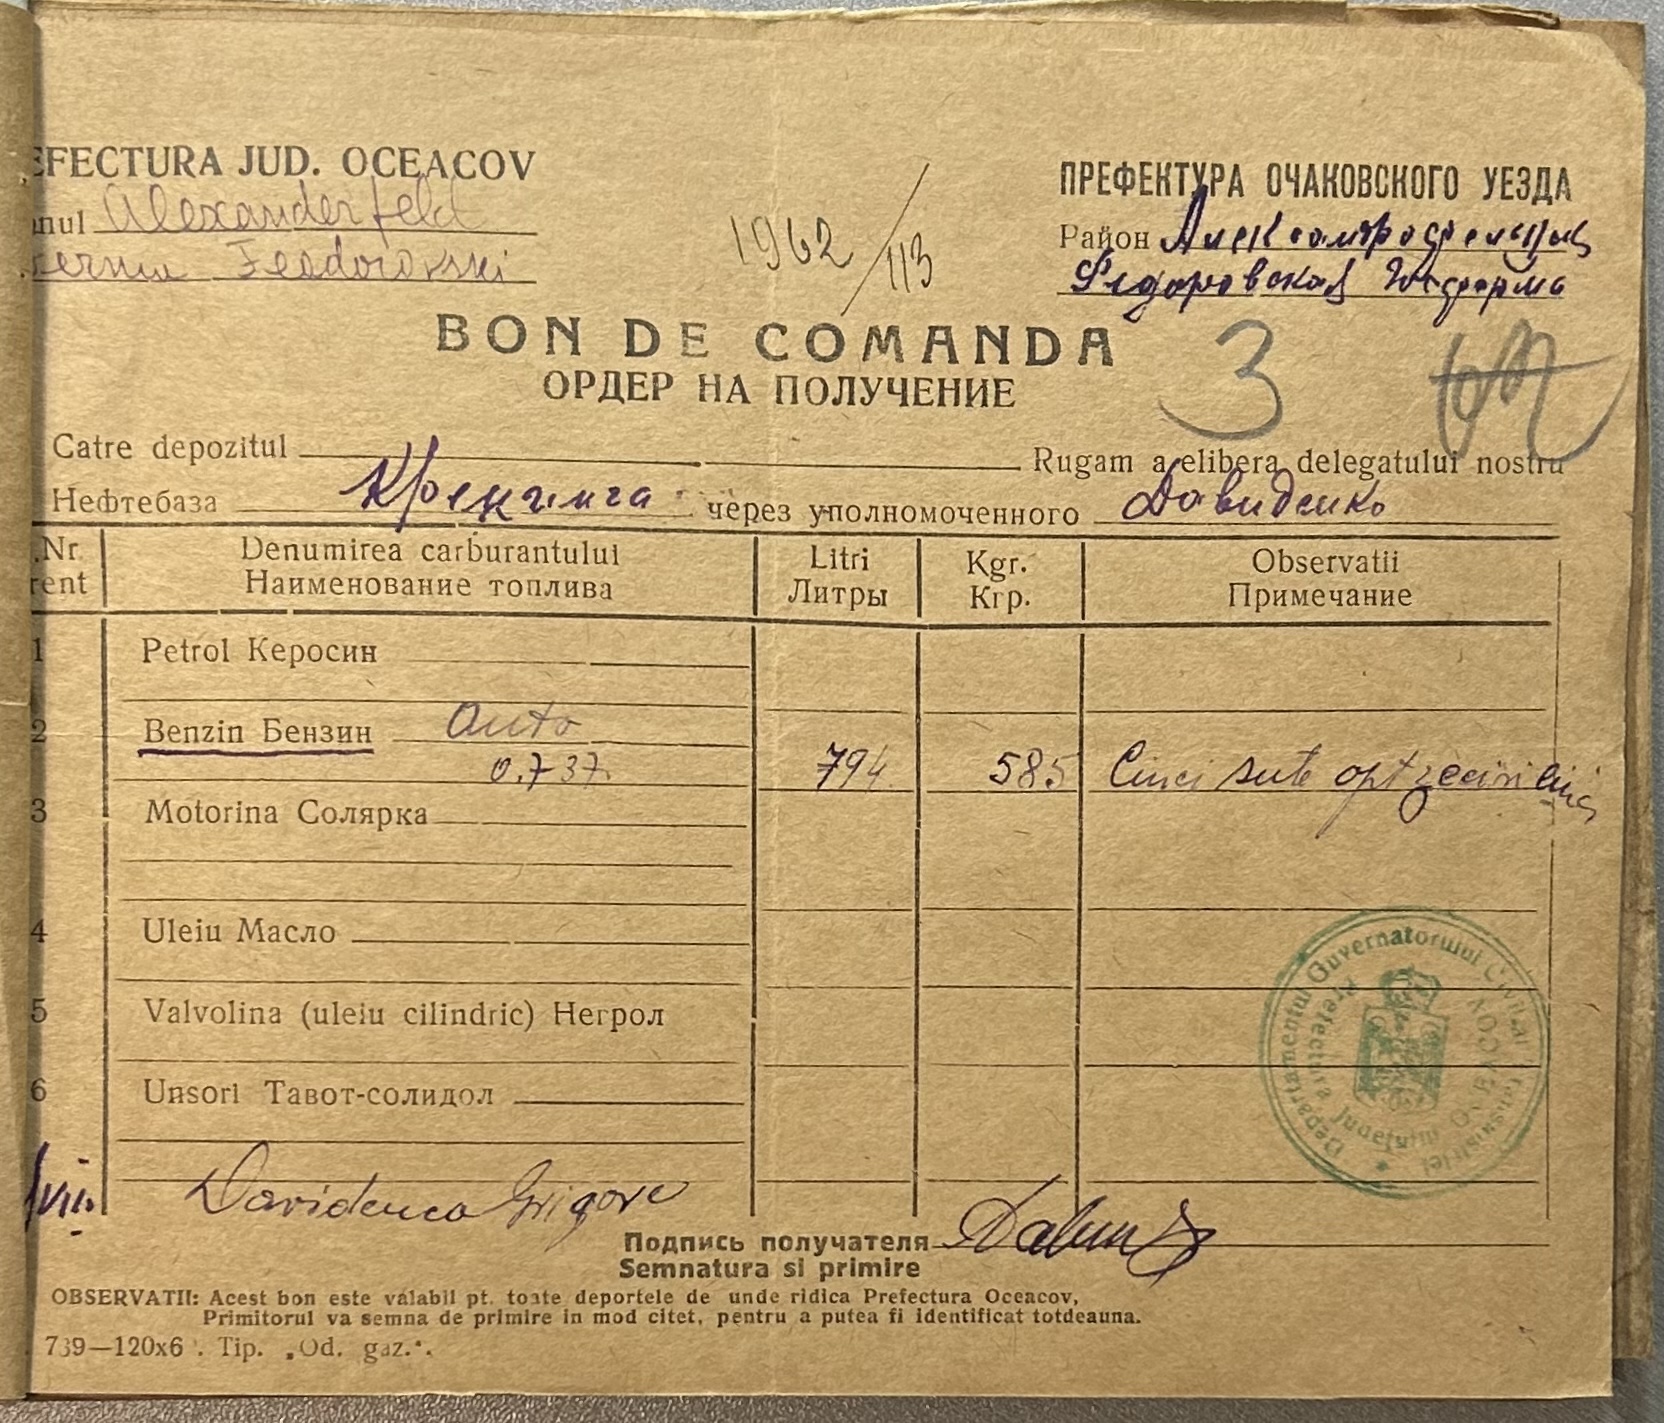 EFECTURA JUD. OCEACOV
ПРЕФЕКТУРА ОЧАКОВСКОГО УЕЗДА
anul Alexanderfeld
1962/113
Район
Feodorovski
Федоровская
BON DE COMANDA
3
ОРДЕР НА ПОЛУЧЕНИЕ
Catre depozitul Rugam a elibera delegatului nostru
Нефтебаза Крекинга через уполномоченного Давиденко
.Nr Denumirea carburantului Litri Kgr. Observatii
rent Наименование топлива Литры Кгр. Примечание
1 Petrol Керосин
2 Benzin Бензин Auto
0.737 794 585 Cinci sute optzeci si cinci
3 Motorina Солярка
4 Uleiu Масло
5 Valvolina (uleiu cilindric) Негрол
6 Unsori Тавот-солидол
Departamentul Guvernatorului Civil al Transnistriei
Prefectura Judetului OCEACOV
Davidenco Grigore
Подпись получателя
Semnatura si primire
OBSERVATII: Acest bon este valabil pt. toate deportele de unde ridica Prefectura Oceacov,
Primitorul va semna de primire in mod citet, pentru a putea fi identificat totdeauna.
739—120x6 . Tip. „Od. gaz.“.